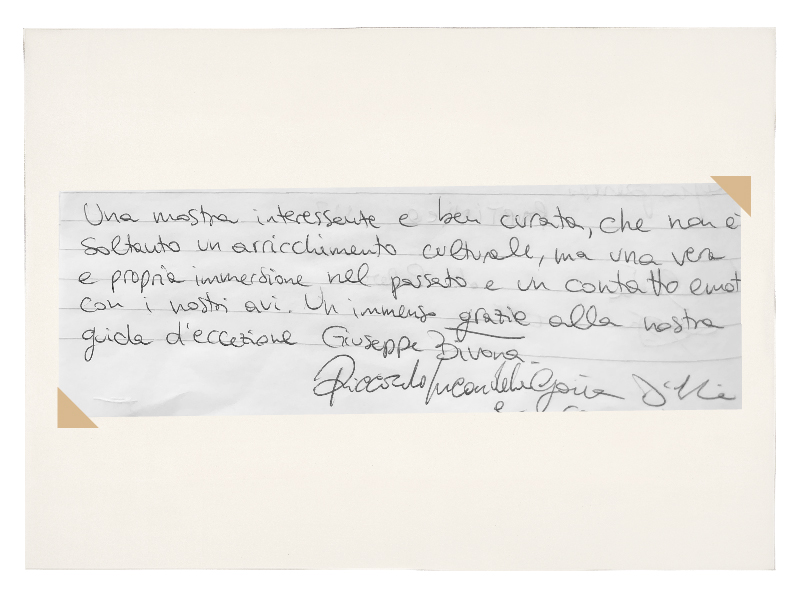 Una mostra interessante e ben curata, che non è
soltanto un arricchimento culturale, ma una vera
e propria immersione nel passato e un contatto emot
con i nostri avi. Un immenso grazie alla nostra
guida d'eccezione Giuseppe Divona.
Riccardo